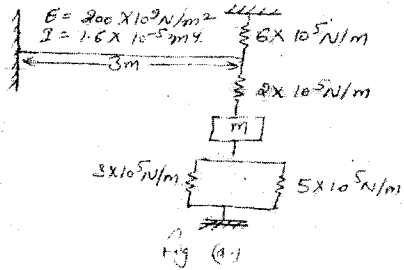 E = 200 X 10⁹ N/m²
I = 1.6 X 10⁻⁵ m4.
6X 10⁵ N/m
3m
2X 10⁵ N/m
m
3X10⁵ N/m
5X10⁵ N/m
fig (a.)